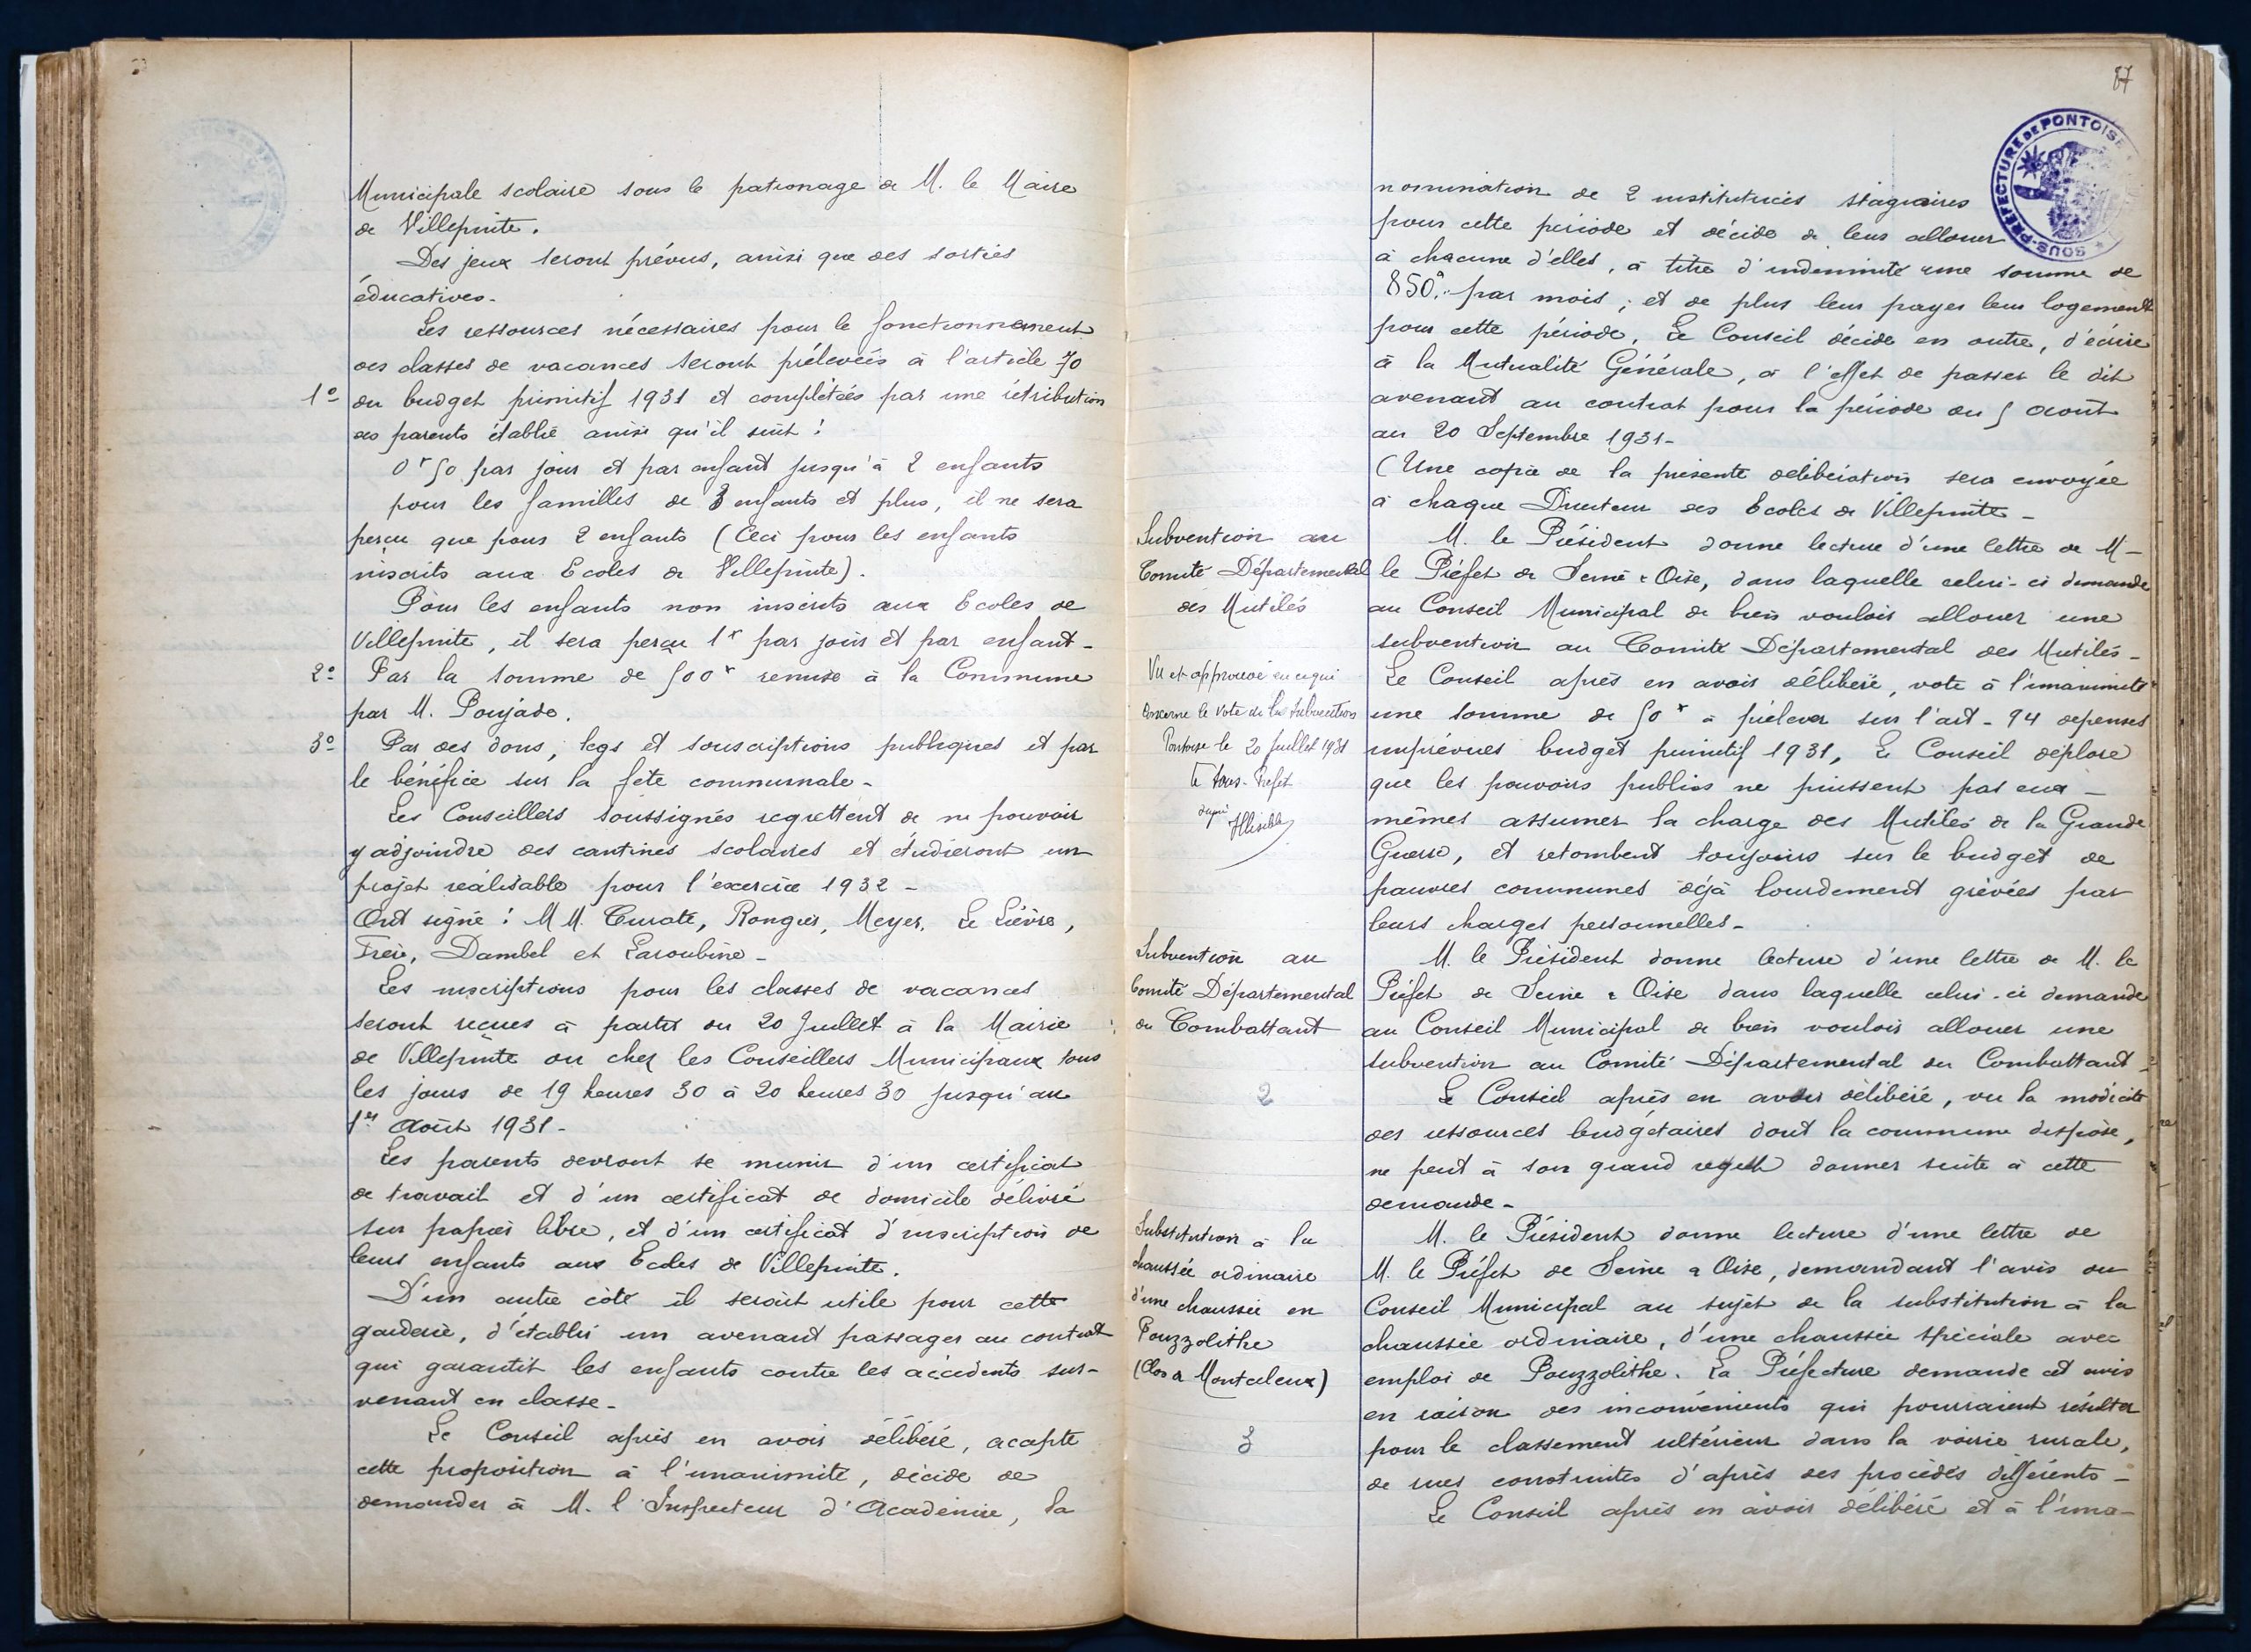 Municipale scolaire sous le patronage de M. le Maire
de Villepinte.
Des jeux seront prévus, ainsi que des sorties
éducatives.
Les ressources nécessaires pour le fonctionnement
des classes de vacances seront prélevées à l'article 70
1° du budget primitif 1931 et complétées par une rétribution
des parents établie ainsi qu'il suit :
0f 50 par jour et par enfant jusqu'à 2 enfants
pour les familles de 3 enfants et plus, il ne sera
perçu que pour 2 enfants (Ceci pour les enfants
inscrits aux Ecoles de Villepinte).
Pour les enfants non inscrits aux Ecoles de
Villepinte, il sera perçu 1f par jour et par enfant -
2° Par la somme de 500f remise à la Commune
par M. Poujade.
3° Par des dons, legs et souscriptions publiques et par
le bénéfice sur la fête communale -
Les Conseillers soussignés regrettent de ne pouvoir
y adjoindre des cantines scolaires et étudieront un
projet réalisable pour l'exercice 1932 -
Ont signé : M M. Curaté, Rongier, Meyer, Le Lièvre,
Frère, Dambel et Laroubine -
Les inscriptions pour les classes de vacances
seront reçues à partir du 20 Juillet à la Mairie
de Villepinte ou chez les Conseillers Municipaux tous
les jours de 19 heures 30 à 20 heures 30 jusqu'au
1er Août 1931 -
Les parents devront se munir d'un certificat
de travail et d'un certificat de domicile délivré
sur papier libre, et d'un certificat d'inscription de
leurs enfants aux Ecoles de Villepinte.
D'un autre côté il serait utile pour cette
garderie, d'établir un avenant passager au contrat
qui garantit les enfants contre les accidents sur-
venant en classe -
Le Conseil après en avoir délibéré, accepte
cette proposition à l'unanimité, décide de
demander à M. l'Inspecteur d'Académie, la
87
SOUS-PREFECTURE DE PONTOISE
nomination de 2 institutrices stagiaires
pour cette période et décide de leur allouer
à chacune d'elles, à titre d'indemnité une somme de
850f par mois ; et de plus leur payer leur logement
pour cette période. Le Conseil décide en outre, d'écrire
à la Mutualité Générale, à l'effet de passer le dit
avenant au contrat pour la période du 5 août
au 20 Septembre 1931 -
(Une copie de la présente délibération sera envoyée
à chaque Directeur des Ecoles de Villepinte -
Subvention au
Comité Départemental
des Mutilés
M. le Président donne lecture d'une lettre de M -
le Préfet de Seine & Oise, dans laquelle celui-ci demande
au Conseil Municipal de bien vouloir allouer une
subvention au Comité Départemental des Mutilés -
Vu et approuvé en ce qui
concerne le vote de la subvention
Pontoise le 20 Juillet 1931
le Sous-Préfet
signé Illisible
Le Conseil après en avoir délibéré, vote à l'unanimité
une somme de 50f à prélever sur l'art - 94 dépenses
imprévues budget primitif 1931, Le Conseil déplore
que les pouvoirs publics ne puissent pas eux -
mêmes assumer la charge des Mutilés de la Grande
Guerre, et retombent toujours sur le budget de
pauvres communes déjà lourdement grévées par
leurs charges personnelles -
Subvention au
Comité Départemental
du Combattant
2
M. le Président donne lecture d'une lettre de M. le
Préfet de Seine & Oise dans laquelle celui-ci demande
au Conseil Municipal de bien vouloir allouer une
subvention au Comité Départemental du Combattant -
Le Conseil après en avoir délibéré, vu la modicité
des ressources budgétaires dont la commune dispose,
ne peut à son grand regret donner suite à cette
demande -
Substitution à la
chaussée ordinaire
d'une chaussée en
Pouzzolithe
(Clos de Montceleux)
3
M. le Président donne lecture d'une lettre de
M. le Préfet de Seine & Oise, demandant l'avis du
Conseil Municipal au sujet de la substitution à la
chaussée ordinaire, d'une chaussée spéciale avec
emploi de Pouzzolithe. La Préfecture demande cet avis
en raison des inconvénients qui pourraient résulter
pour le classement ultérieur dans la voirie rurale,
de rues construites d'après des procédés différents -
Le Conseil après en avoir délibéré et à l'una-